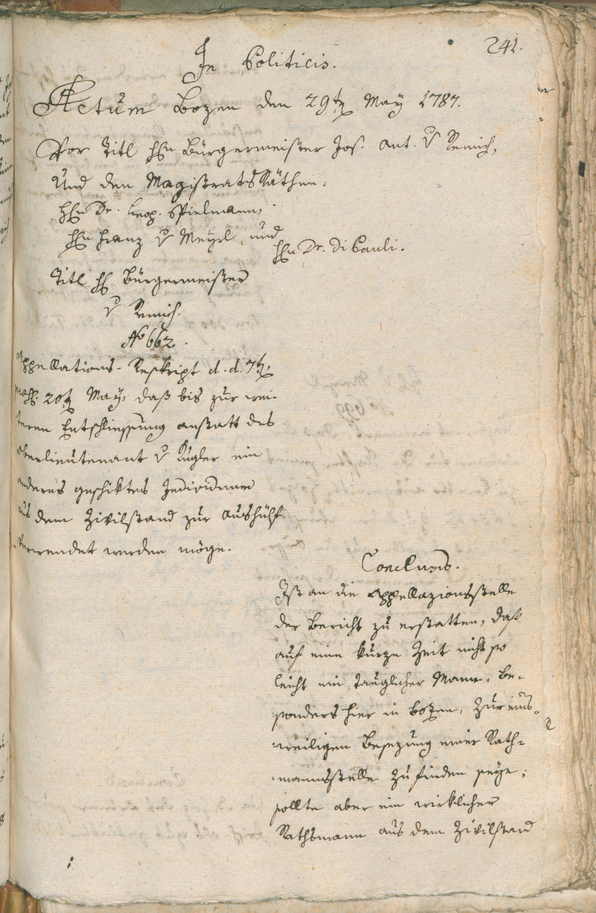 241.
In Politicis.
Actum Bozen den 29t May 1787.
Vor Titl Hhn Bürgermeister Jos. Ant. v Remich,
Und den Magistrats Räthen:
Hhn Dr. Leop. Spielmann,
Hhn Franz v Meyrl, und
Hhn Dr. di Pauli.
Titl Hh Bürgermeister
v Remich.
No 662.
Appellations-Reskript d. d. 7t
20t May, daß bis zur wei-
teren Entschliessung anstatt des
Oberlieutenant v Kugler ein
anderes geschiktes Individuum
aus dem Zivilstand zur Aushülf
verwendet werden möge.
Conclusum.
Ist an die Appellazionsstelle
der Bericht zu erstatten, daß
auf eine kurze Zeit nicht so
leicht ein tauglicher Mann, be-
sonders hier in Bozen, zur eins-
weiligen Besezung einer Rath-
mannsstelle zu finden seye;
sollte aber ein wirklicher
Rathsmann aus dem Zivilstand